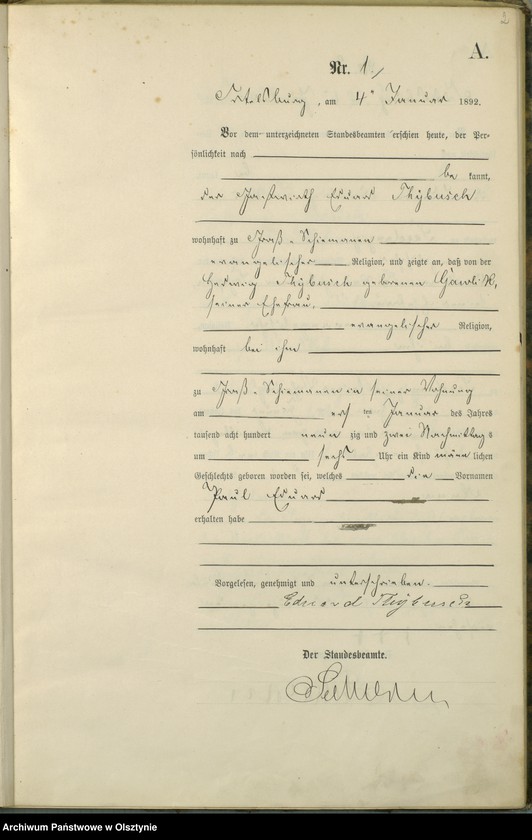 2
A.
Nr. 1.
Ortelsburg, am 4n Januar 1892.
Vor dem unterzeichneten Standesbeamten erschien heute, der Per-
sönlichkeit nach
be kannt,
der Gastwirth Eduard Thybusch
wohnhaft zu Groß-Schiemanen
evangelischer Religion, und zeigte an, daß von der
Hedwig Thybusch geborenen
seiner Ehefrau,
evangelischer Religion,
wohnhaft bei ihm
zu Groß-Schiemanen in seiner Wohnung
am ersten Januar des Jahres
tausend acht hundert neun zig und zwei Nachmittags
um sechs Uhr ein Kind männlichen
Geschlechts geboren worden sei, welches die Vornamen
Paul Eduard
erhalten habe
Vorgelesen, genehmigt und unterschrieben.
Eduard Thybusch
Der Standesbeamte.
Archiwum Państwowe w Olsztynie